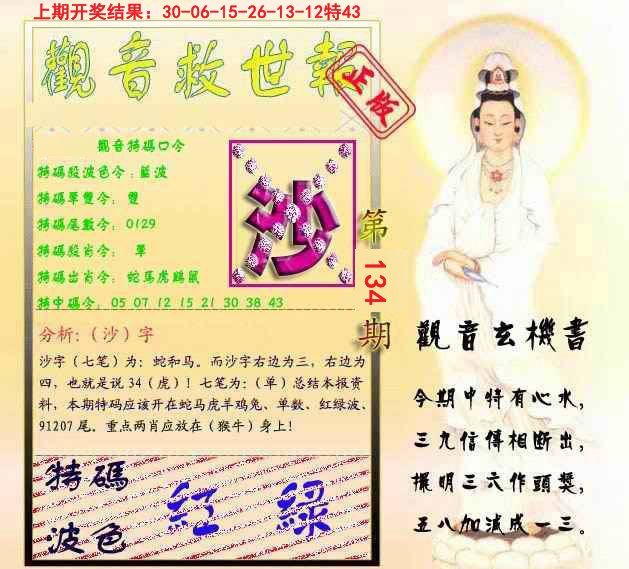 上期开奖结果：30-06-15-26-13-12特43
觀音救世報
正版
觀音特碼口令
特碼段波色令：藍波
特碼單雙令： 雙
特碼尾數令： 0129
特碼段肖令： 單
特碼出肖令： 蛇馬虎鷄鼠
特中碼令： 05 07 12 15 21 30 38 43
沙
第
134
期
分析:（沙）字
沙字（七笔）为：蛇和马。而沙字右边为三，右边为
四，也就是说34（虎）！七笔为：（单）总结本报资
料，本期特码应该开在蛇马虎羊鸡兔、单数、红绿波、
91207尾。重点两肖应放在（猴牛）身上！
特碼
波色
紅 綠
觀音玄機書
今期中特有心水，
三九信傳相断出，
擺明三六作頭獎，
五八加減成一三。